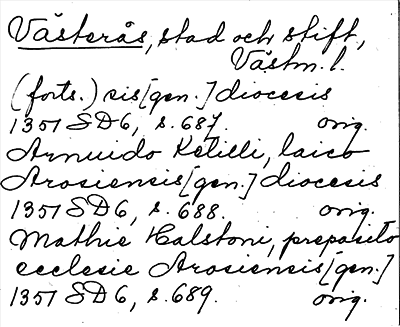 Västerås, stad och stift,
Västm. l.
(forts.) sis [gen.] diocesis
1351 SD6, s. 687. orig.
Arnuido Ketilli, laico
Arosiensis [gen.] diocesis
1351 SD6, s. 688. orig.
Mathie Halstoni, preposito
ecclesie Arosiensis [gen.]
1351 SD6, s. 689. orig.